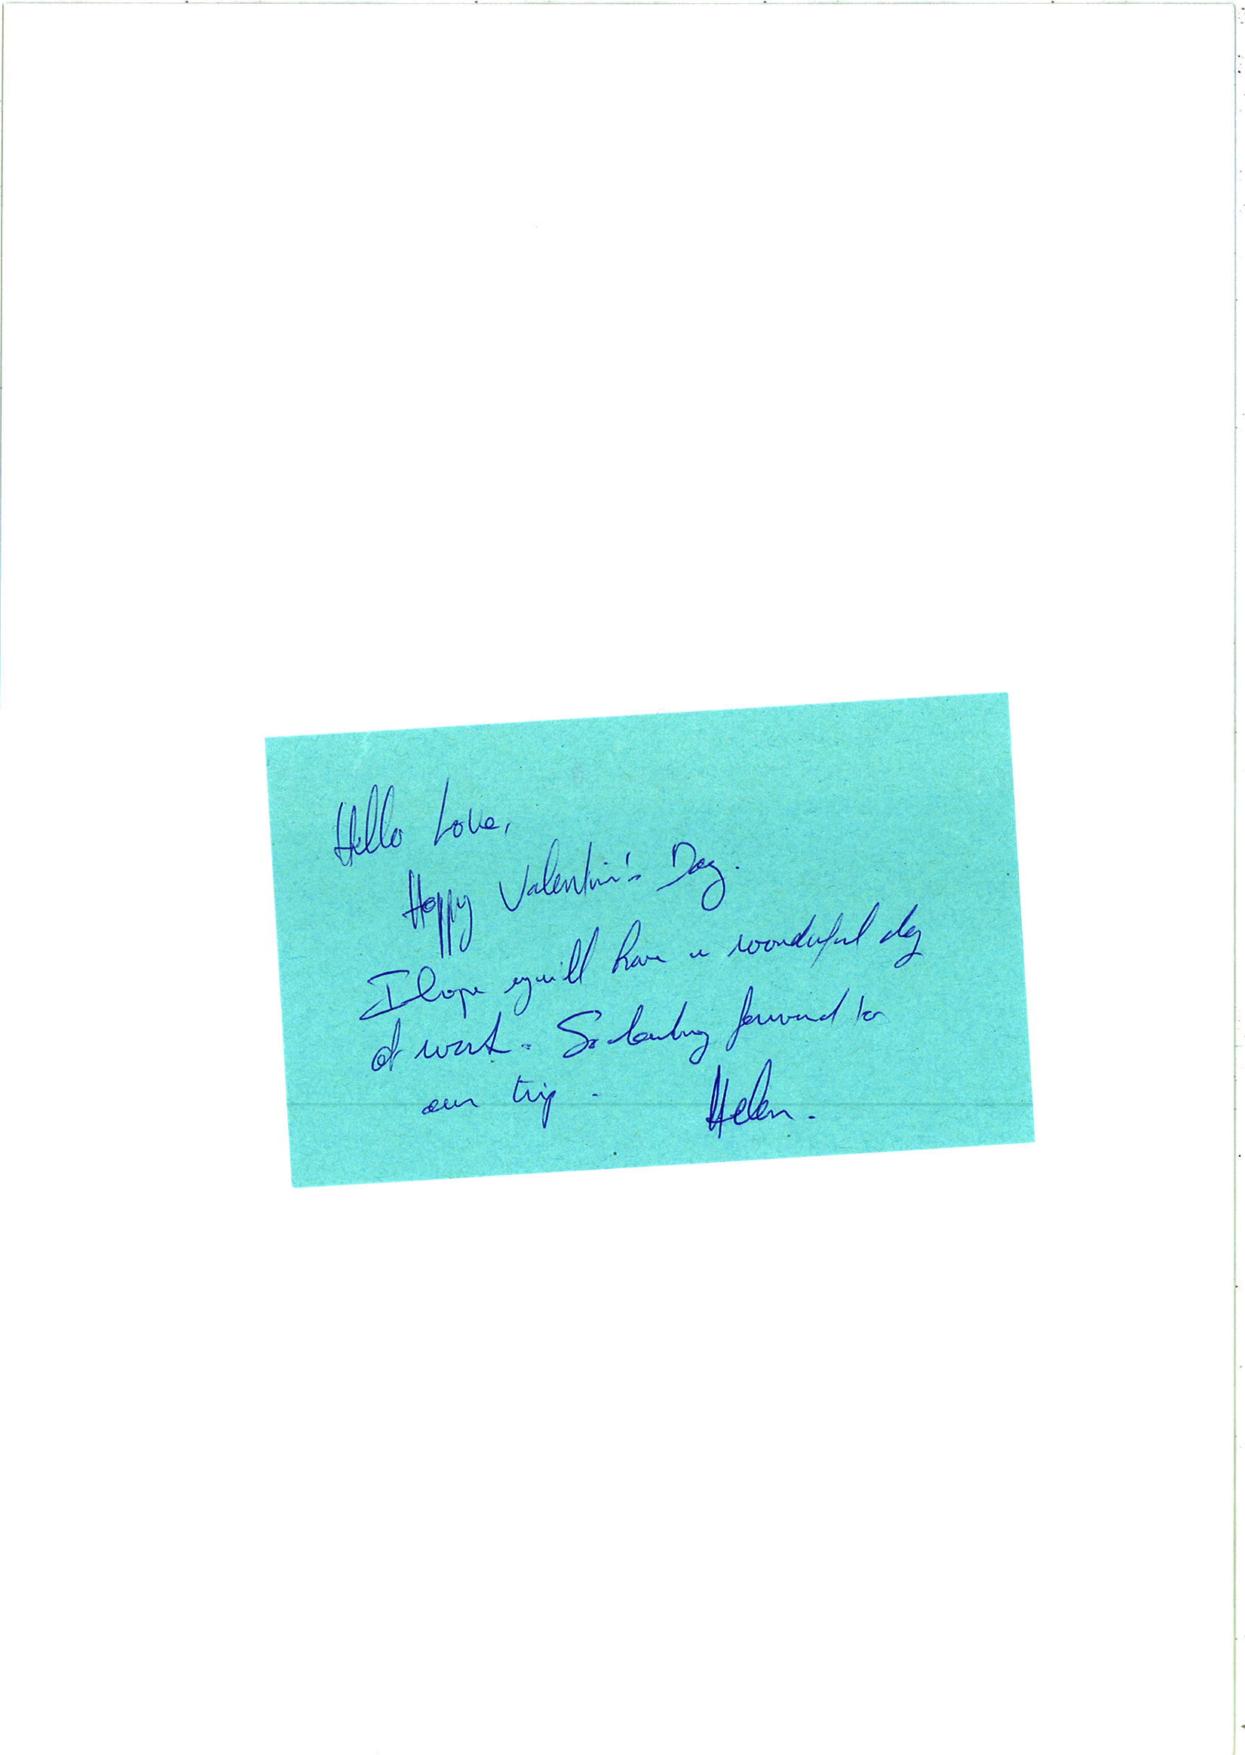 Hello Love,
Happy Valentin's Day.
I hope you'll have a wonderful day
at work. So looking forward to
our trip.
Helen.